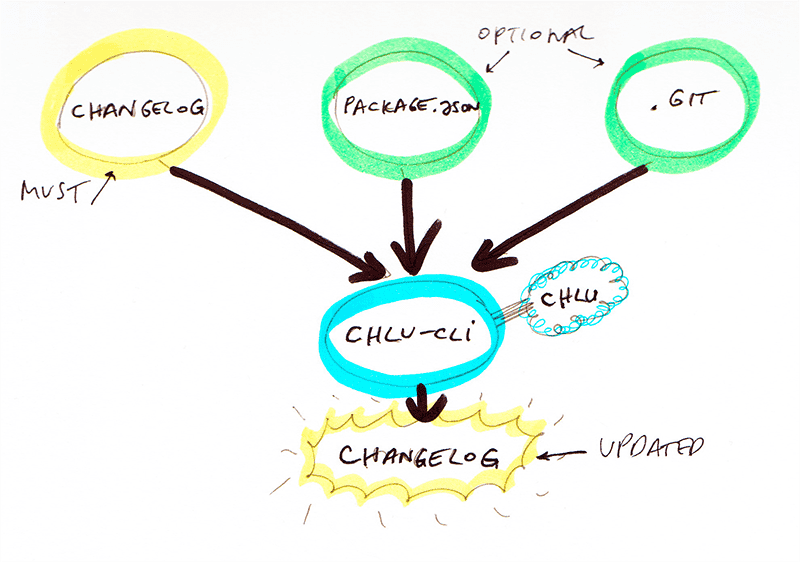 OPTIONAL
CHANGELOG
PACKAGE.JSON
.GIT
MUST
CHLU
CHLU-CLI
CHANGELOG
UPDATED